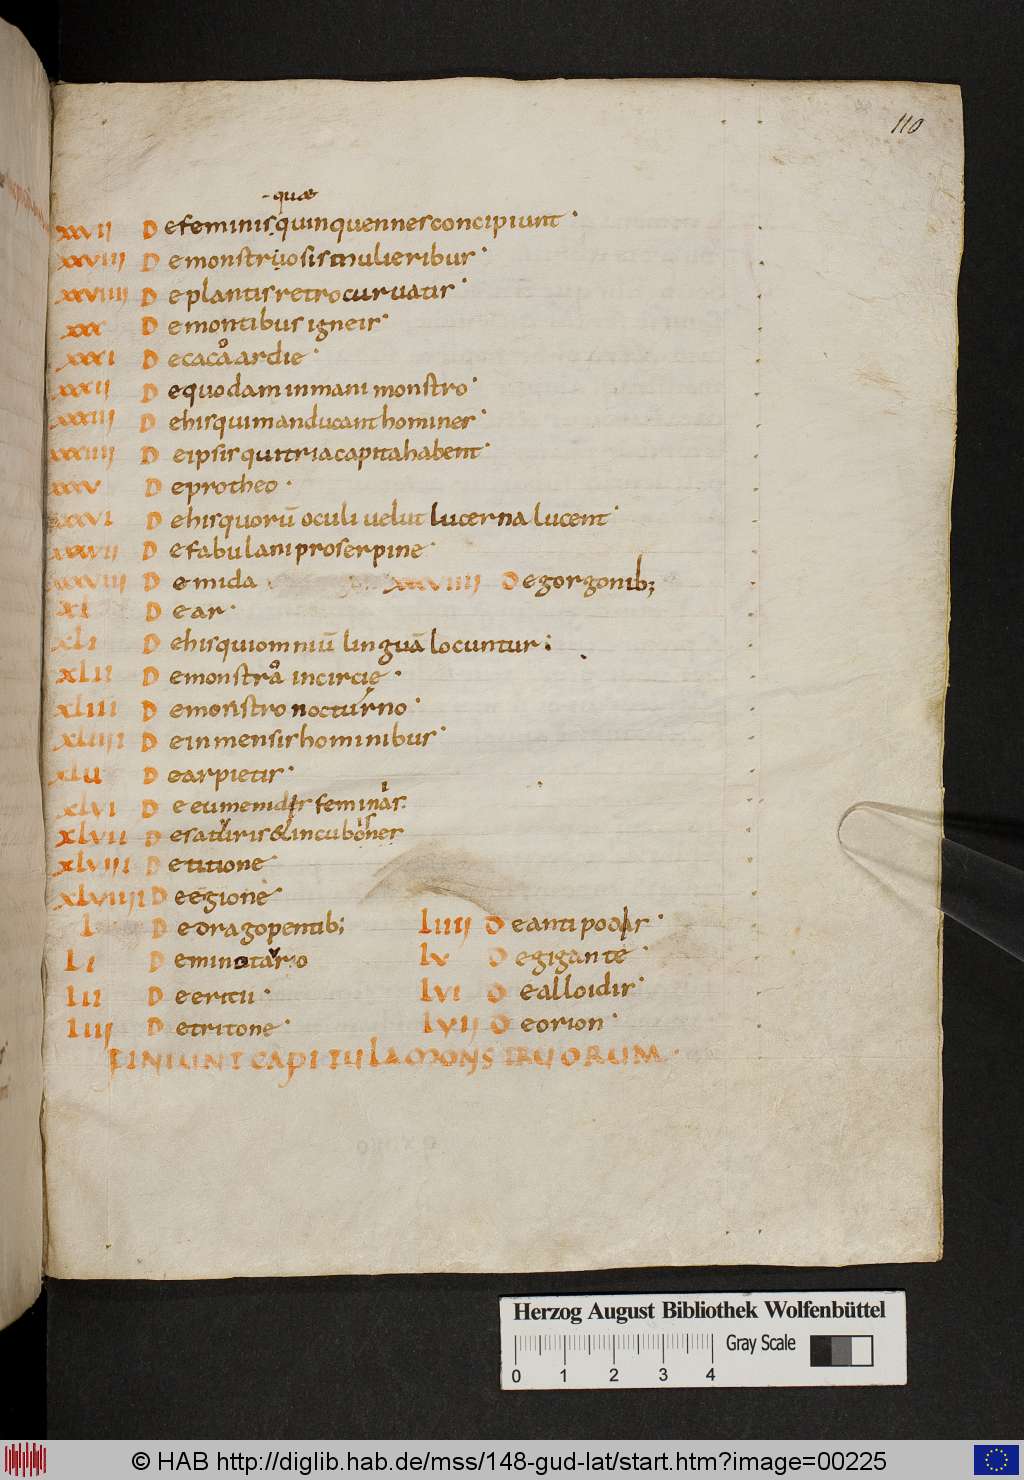 110
-quæ
xxvii De feminis quinquennes concipiunt·
xxviii De monstruosis mulieribus·
xxviiii De plantis retro curuatis·
xxx De montibus igneis·
xxxi De cacoa ardie·
xxxii De quodam inmani monstro·
xxxiii De his qui manducant homines·
xxxiiii De ipsis qui tria capita habent·
xxxv De protheo·
xxxvi De his quorū oculi uelut lucerna lucent·
xxxvii De fabulani proserpine·
xxxviii De mida xxxviiii De gorgonib;
xl De ar·
xli De his qui omniū linguā locuntur:
xlii De monstroa in circię·
xliii De monstro nocturno·
xliiii De inmensis hominibus·
xlu De arpietis·
xlvi De eumenidis feminas·
xlvii De saturis & incubones
xlviii De titione·
xlviiii De egione·
l De dragopentib; liiii De antipodas·
li De minotauro lv De gigante·
lii De eritii· lvi De alloidis·
liii De tritone· lvii De orion·
FINIUNT CAPITULA MONSTRUORUM·
Herzog August Bibliothek Wolfenbüttel
Gray Scale
0 1 2 3 4
© HAB http://diglib.hab.de/mss/148-gud-lat/start.htm?image=00225